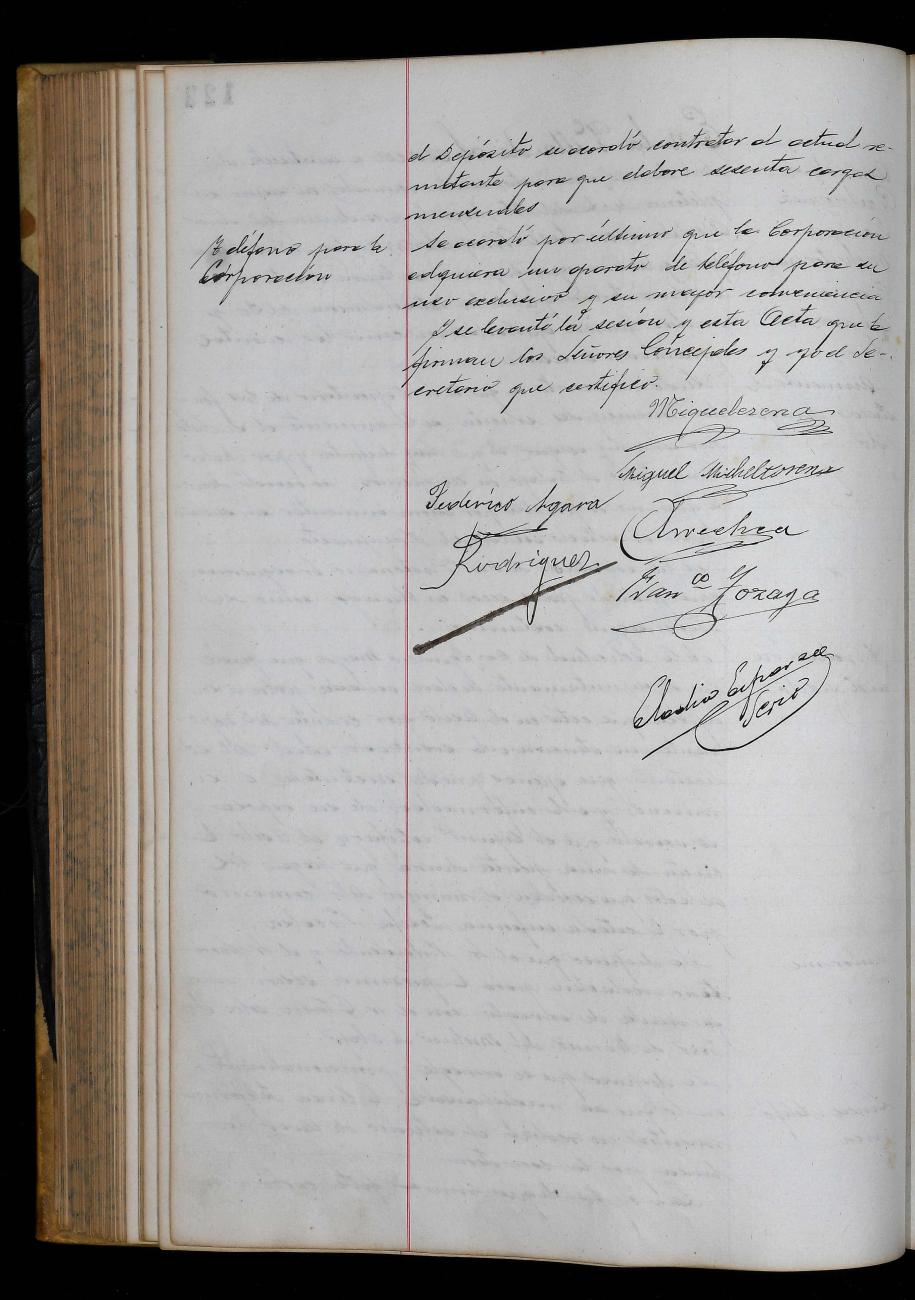 el Depósito se acordó contratar al actual re-
matante para que elabore sesenta cargas
mensuales
Teléfono para la
Corporación
Se acordó por último que la Corporación
adquiera un aparato de teléfono para su
uso exclusivo y su mayor conveniencia
Y se levantó la sesión y esta Acta que la
firman los Señores Concejales y yo el Se-
cretario que certifico.
Miquelezena
Miguel Micheltorena
Federico Agara
Arrechea
Rodriguez
Franco Gozaga
Eladio Esparza
Serio